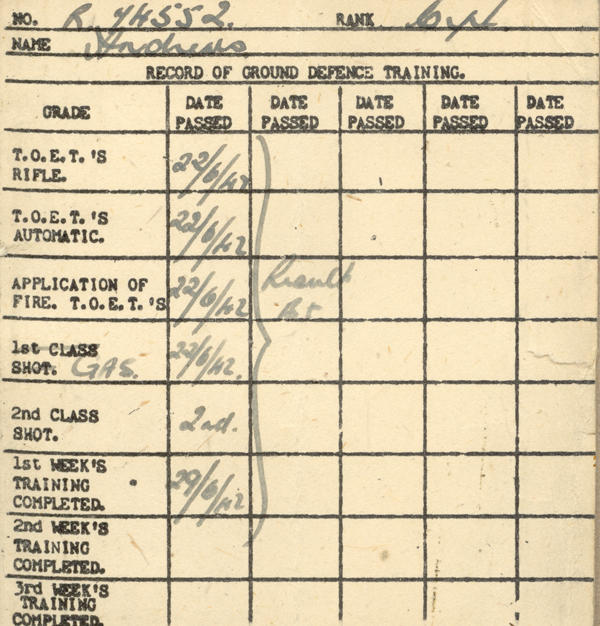 NO. R. 74552. RANK Cpl
NAME Andrews
RECORD OF GROUND DEFENCE TRAINING.
GRADE DATE PASSED DATE PASSED DATE PASSED DATE PASSED DATE PASSED
T.O.E.T.'S
RIFLE. 22/6/42
T.O.E.T.'S
AUTOMATIC. 22/6/42
APPLICATION OF
FIRE. T.O.E.T.'S 22/6/42 Result
1st CLASS
SHOT. GAS. 22/6/42.
2nd CLASS
SHOT. 2nd.
1st WEEK'S
TRAINING
COMPLETED. 29/6/42
2nd WEEK'S
TRAINING
COMPLETED.
3rd WEEK'S
TRAINING
COMPLETED.